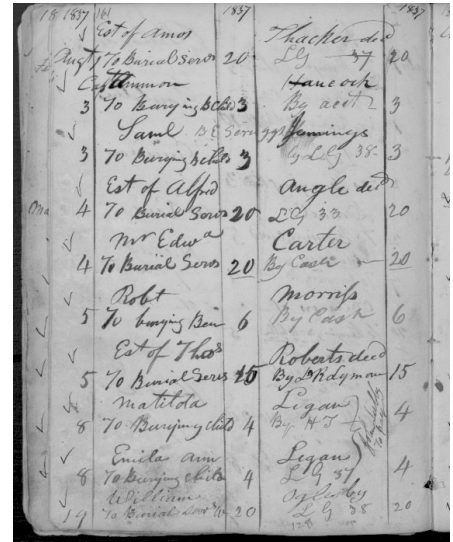 18 1837 161 1837 1837
Est of Amos Thacker decd
Augt 1 To Burial Servs 20 LG 37 20
Capt Ammon Hancock
3 To Burying B Child 3 By acct 3
Saml Jennings
3 To Burying B Child 3 By LG 38 3
Est of Alfrd Angle decd
4 To Burial Servs 20 LG 33 20
Mr Edwd Carter
4 To Burial Servs 20 By Cash 20
Robt Morriss
5 To burying Ben 6 By Cash 6
Est of Thos Roberts decd
5 To Burial Servs 15 15
Matilda Logan
8 To Burying child 4 By H T 4
Emila Ann Logan
8 To Burying child 4 LG 37 4
William Oglesby
19 To Burial Servs W 20 LG 38 20
128